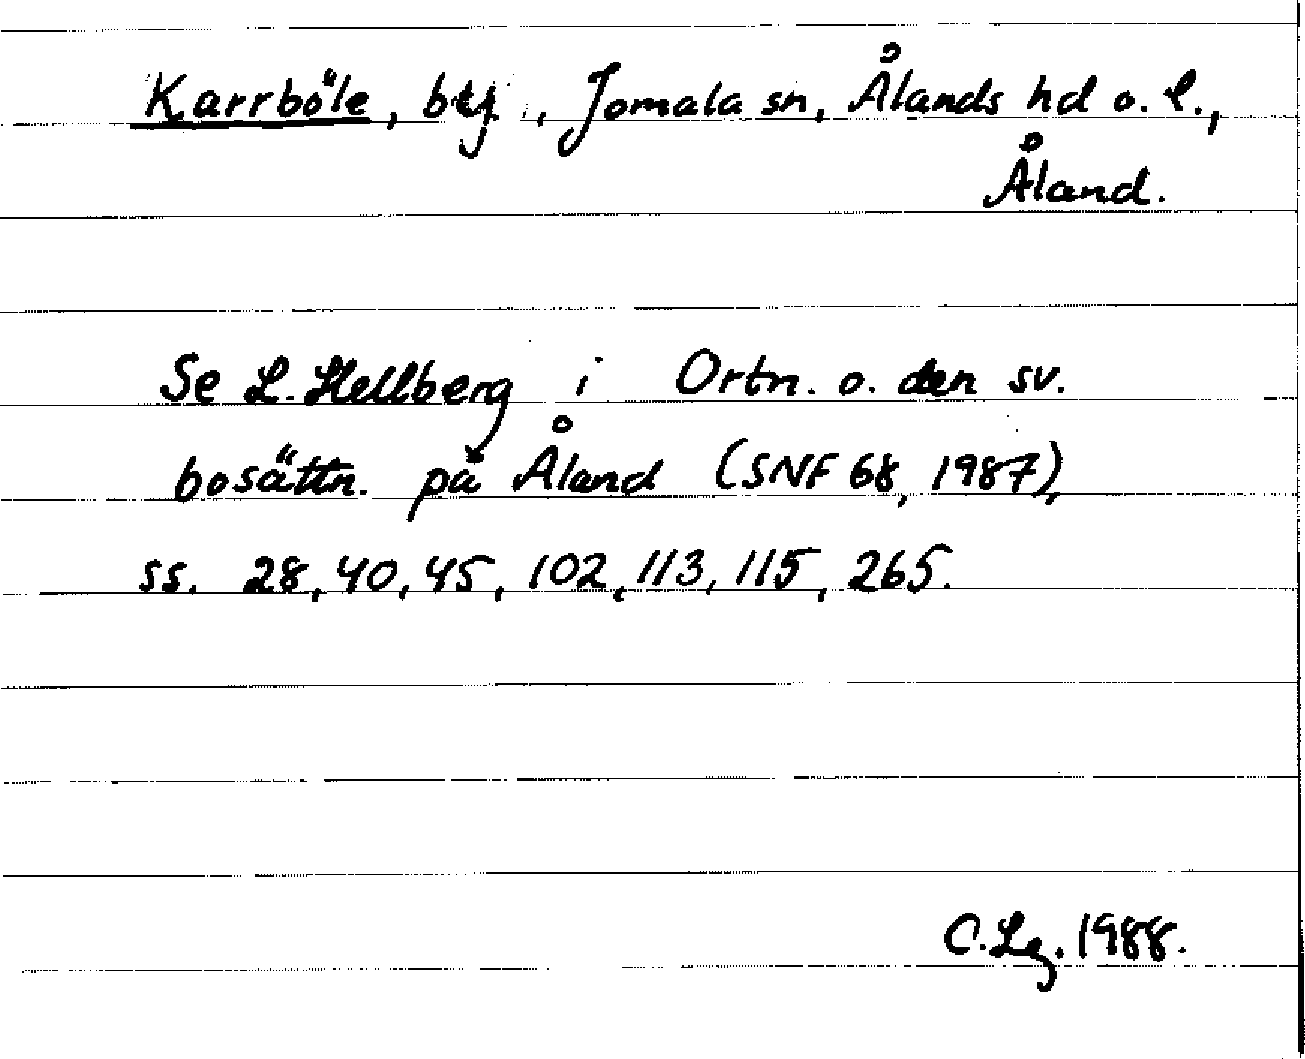 Karrböle, by, Jomala sn, Ålands hd o. l.,
Åland.
Se L. Hellberg i Ortn. o. den sv.
bosättn. på Åland (SNF 68, 1987),
ss. 28, 40, 45, 102, 113, 115, 265.
C. Lg. 1988.